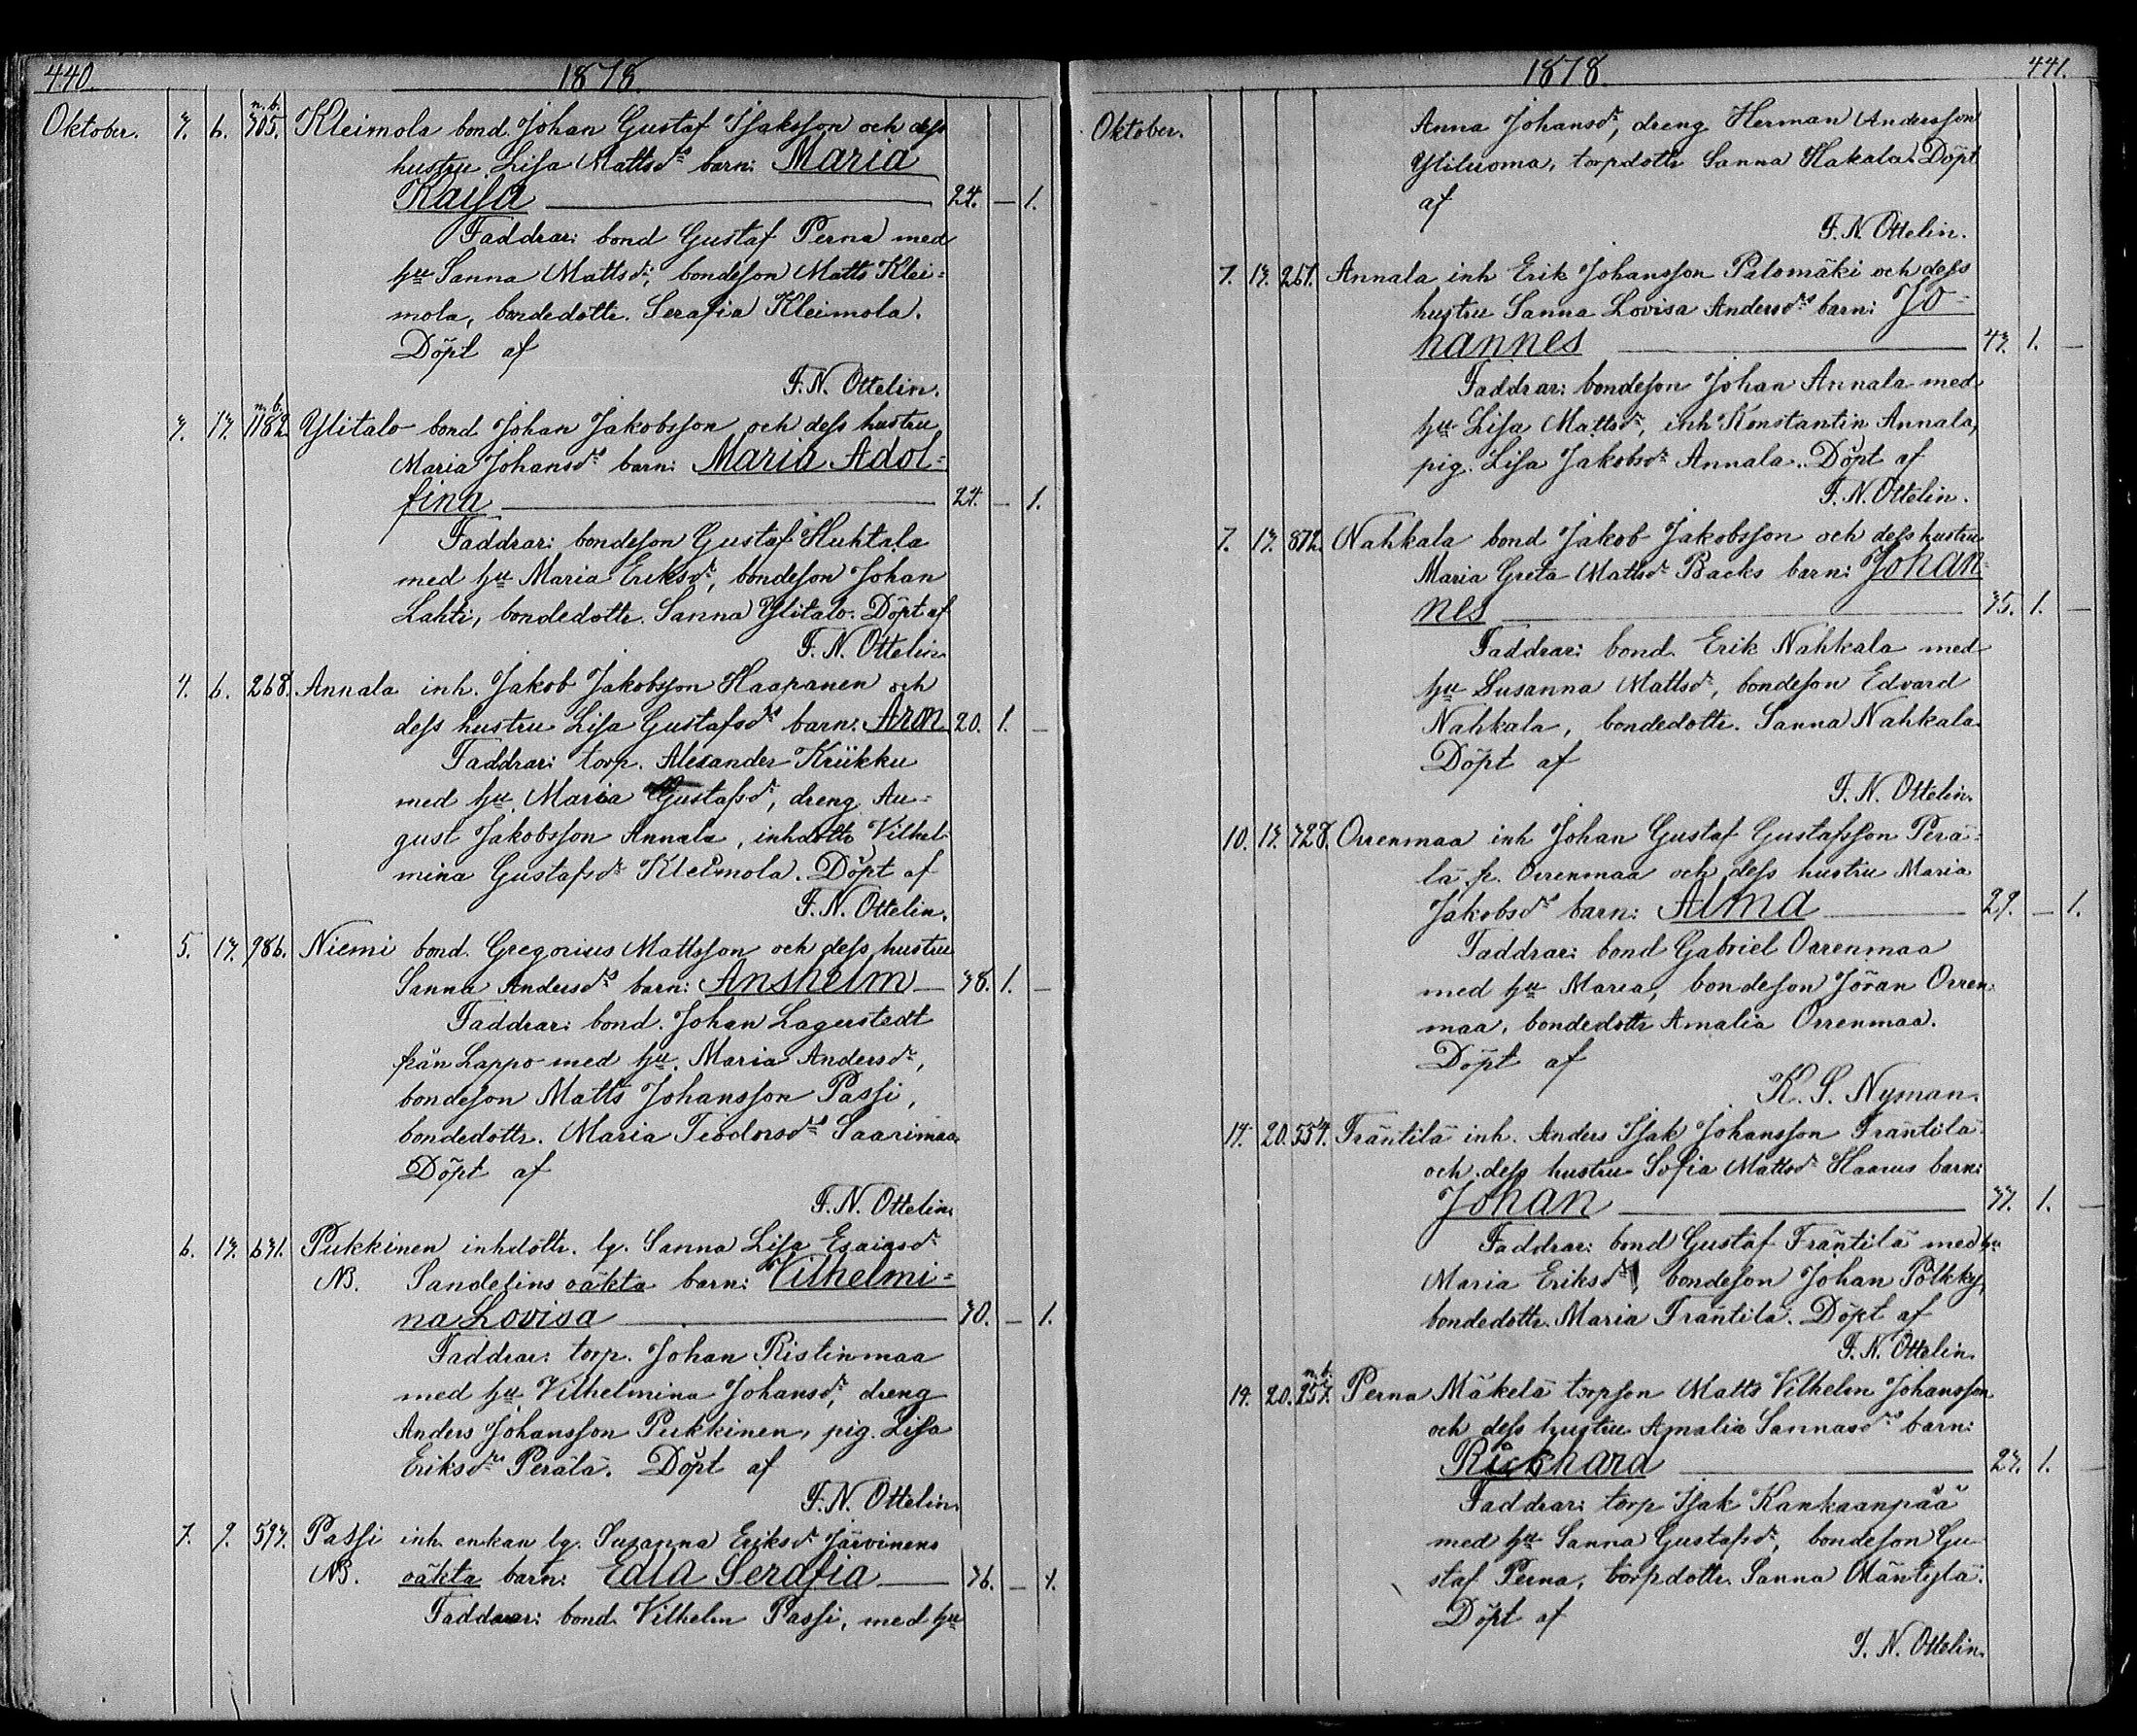 440. 1878.
Oktober. 3. 6. n. b. 305. Kleimola bond. Johan Gustaf Isaksson och dess
hustru Lisa Mattsdr barn: Maria
Kaisa 24. — 1.
Faddrar: bond Gustaf Perna med
hu Sanna Mattsdr, bondeson Matts Klei=
mola, bondedottr. Serafia Kleimola.
Döpt af
F. N. Ottelin.
3. 13. n. b. 1182. Ylitalo bond Johan Jakobsson och dess hustru
Maria Johansdr barn: Maria Adol=
fina 24. — 1.
Faddrar: bondeson Gustaf Huhtala
med hu Maria Eriksdr, bondeson Johan
Lahti, bondedottr. Sanna Ylitalo. Döpt af
F. N. Ottelin.
4. 6. 268. Annala inh. Jakob Jakobsson Haapanen och
dess hustru Lisa Gustafsdr barn: Aron 20. 1. —
Faddrar: torp. Alexander Kriikku
med hu Maria Gustafsdr, dreng Au=
gust Jakobsson Annala, inhdottr Vilhel
mina Gustafsdr Kleimola. Döpt af
F. N. Ottelin.
5. 13. 986. Niemi bond. Gregorius Mattsson och dess hustru
Sanna Andersdr barn: Anshelm — 38. 1. —
Faddrar: bond. Johan Lagerstedt
från Lappo med hu. Maria Andersdr,
bondeson Matts Johansson Passi,
bondedottr. Maria Teodorsdr Saarimaa.
Döpt af
F. N. Ottelin.
6. 13. 631. Pukkinen inhdottr. lg. Sanna Lisa Esaiasdr
NB. Sandelins oäkta barn: Vilhelmi=
na Lovisa 30. — 1.
Faddrar: torp. Johan Ristinmaa
med hu Vilhelmina Johansdr, dreng
Anders Johansson Pukkinen, pig. Lisa
Eriksdr Perälä. Döpt af
F. N. Ottelin.
7. 9. 593. Passi inh. enkan lg. Susanna Eriksdr Järvinens
NB. oäkta barn: Edla Serafia — 36. — 1.
Faddrar: bond. Vilhelm Passi, med hu
1878. 441.
Oktober. Anna Johansdr, dreng Herman Andersson
Yliluoma, torpdottr Sanna Hakala. Döpt
af
F. N. Ottelin.
7. 13. 261. Annala inh Erik Johansson Palomäki och dess
hustru Sanna Lovisa Andersdr barn: Jo=
hannes 43. 1. —
Faddrar: bondeson Johan Annala med
hu Lisa Mattsdr, inh Konstantin Annala,
pig. Lisa Jakobsdr Annala. Döpt af
F. N. Ottelin.
7. 13. 872. Nahkala bond Jakob Jakobsson och dess hustru
Maria Greta Mattsdr Backs barn: Johan=
nes 35. 1. —
Faddrar: bond. Erik Nahkala med
hu Susanna Mattsdr, bondeson Edvard
Nahkala, bondedottr. Sanna Nahkala.
Döpt af
F. N. Ottelin.
10. 13. 728. Orrenmaa inh Johan Gustaf Gustafsson Perä=
lä p. Orrenmaa och dess hustru Maria
Jakobsdr barn: Alma 29. — 1.
Faddrar: bond Gabriel Orrenmaa
med hu Maria, bondeson Jöran Orren=
maa, bondedottr Amalia Orrenmaa.
Döpt af
K. S. Nyman.
14. 20. 554. Fräntilä inh. Anders Isak Johansson Fräntilä
och dess hustru Sofia Mattsdr Haarus barn:
Johan 33. 1. —
Faddrar: bond Gustaf Fräntilä med hu
Maria Eriksdr, bondeson Johan Pölkky,
bondedottr. Maria Fräntilä. Döpt af
F. N. Ottelin.
14. 20. n. b. 257. Perna Mäkelä torpson Matts Vilhelm Johansson
och dess hustru Amalia Sannasdr barn:
Rickhard 23. 1. —
Faddrar: torp Isak Kankaanpää
med hu Sanna Gustafsdr, bondeson Gu
staf Perna, torpdottr. Sanna Mäntylä.
Döpt af
F. N. Ottelin.